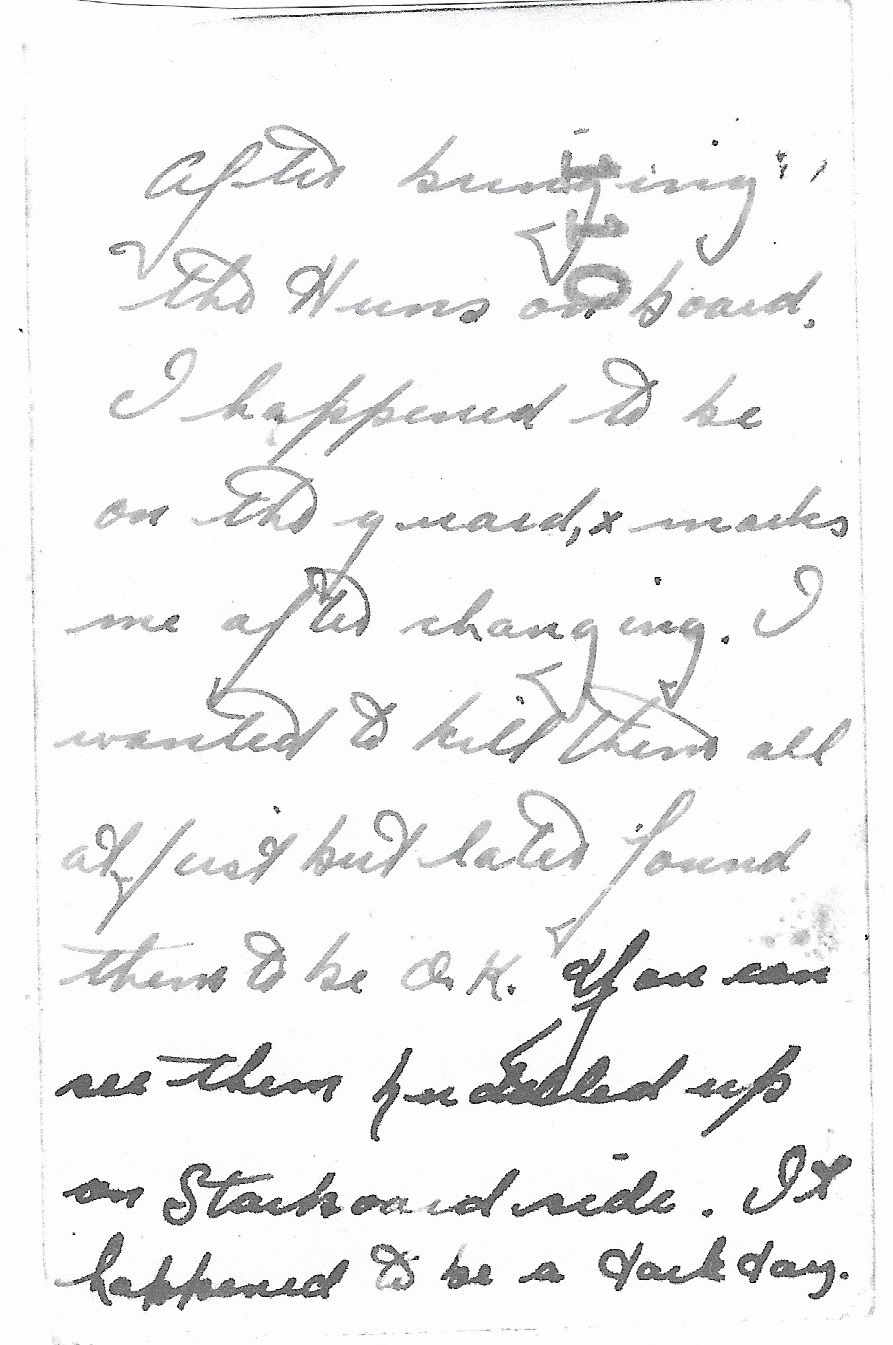 After bringing
the Huns on board.
I happened to be
on the guard, x marks
me after changing. I
wanted to kill them all
at first but later found
them to be O.K. You can
see them huddled up
on Starboard side. It
happened to be a dark day.